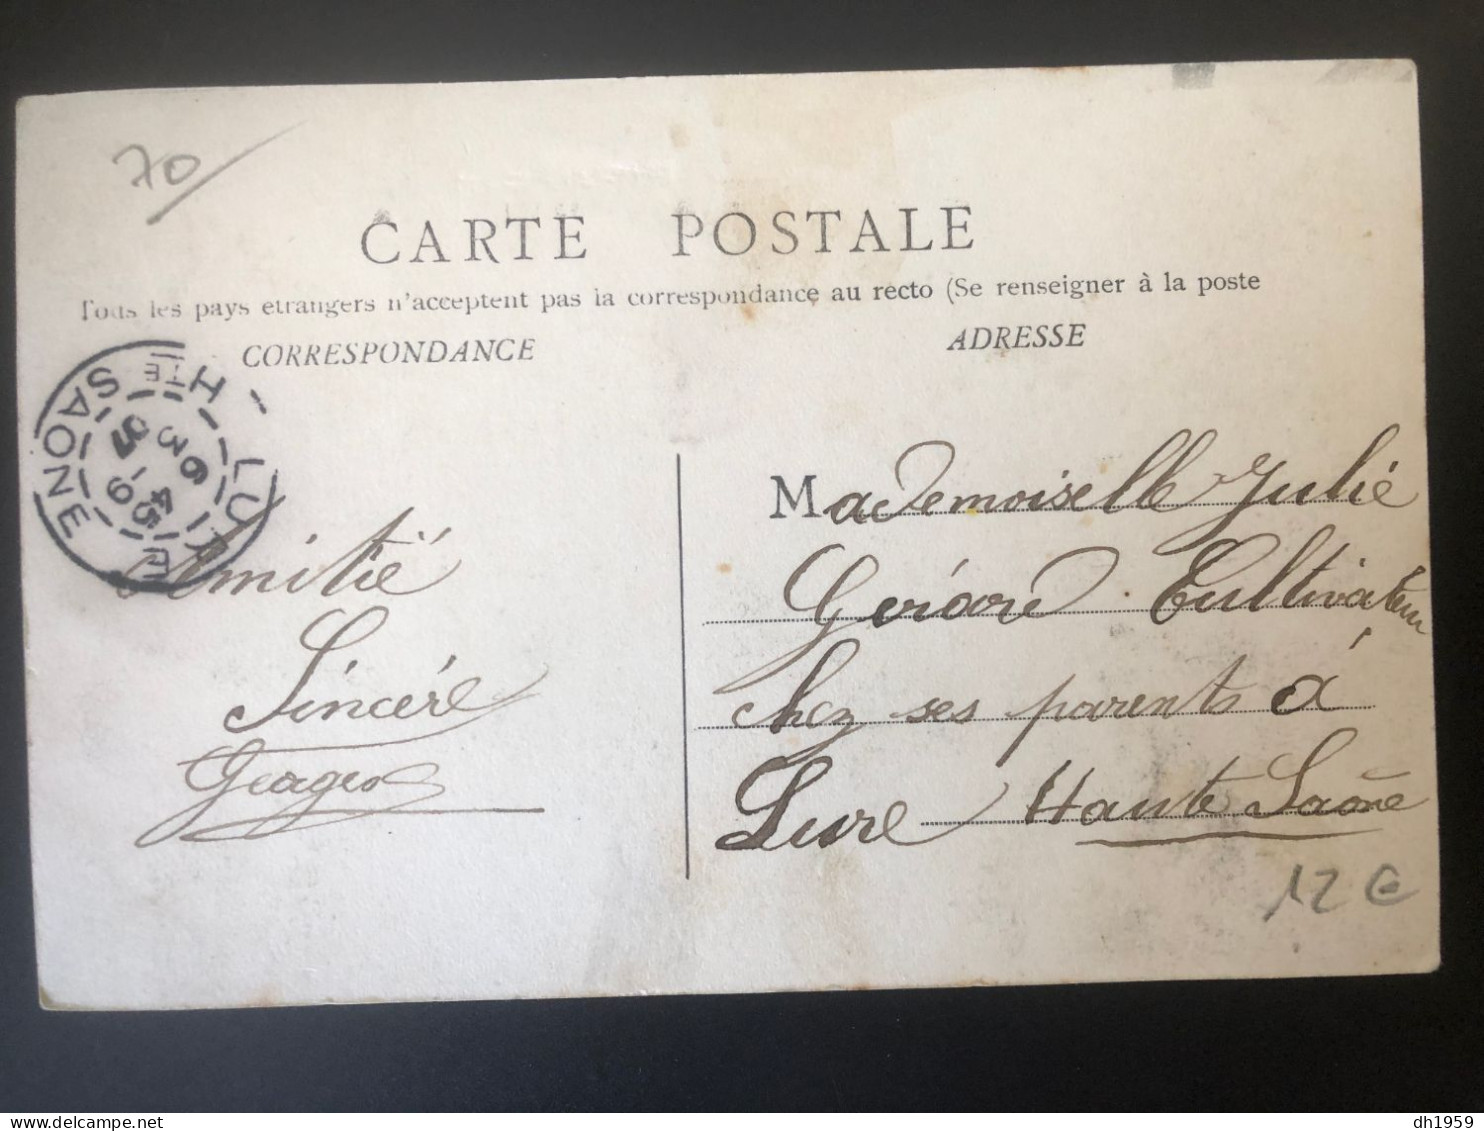 70
CARTE POSTALE
Tous les pays étrangers n'acceptent pas la correspondance au recto (Se renseigner à la poste
CORRESPONDANCE
ADRESSE
LURE
HTE SAONE
9-45
6 3
07
Amitié
Sincère
Georges
Mademoiselle Julie
Gérard Cultivateur
chez ses parents à
Lure Haute Saône
12 €
dh1959